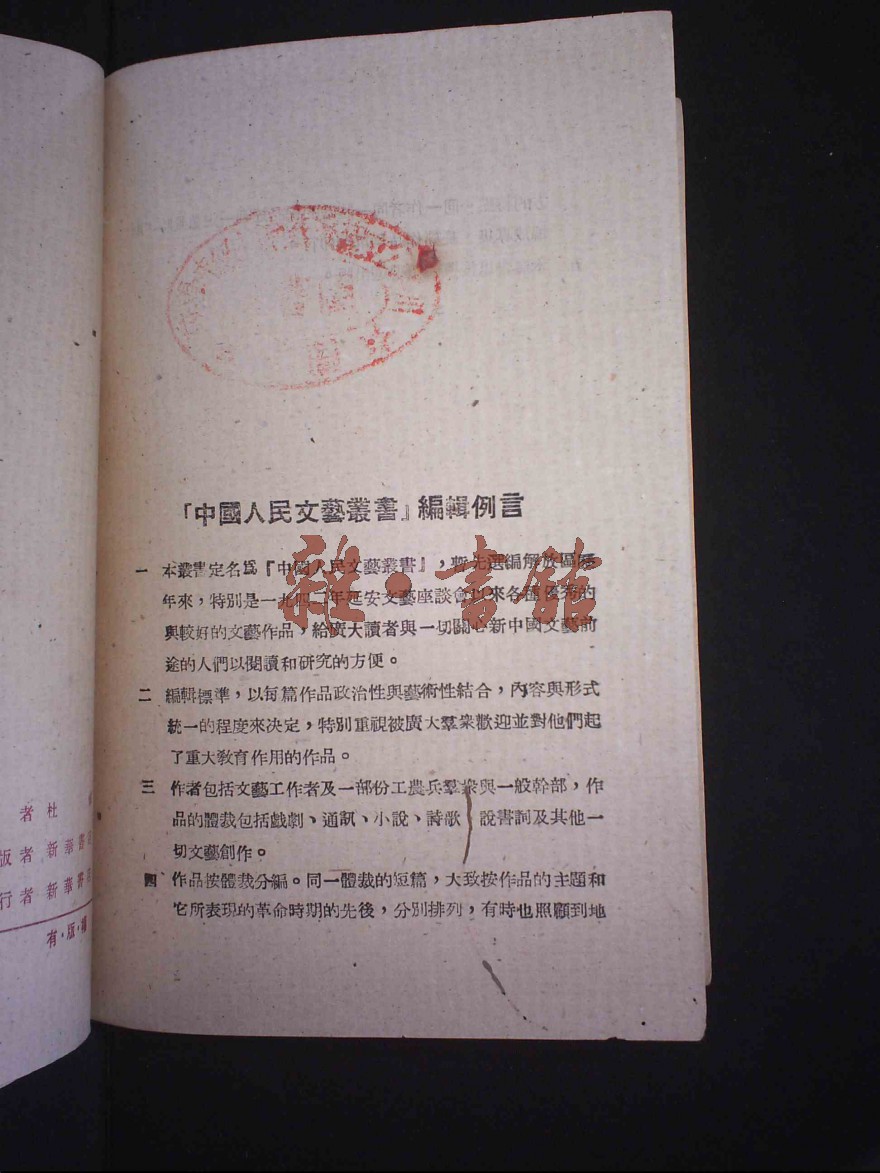 『中國人民文藝叢書』編輯例言
一 本叢書定名爲『中國人民文藝叢書』，暫先選編解放區歷
年來，特別是一九四二年延安文藝座談會以來各種優秀的
與較好的文藝作品，給廣大讀者與一切關心新中國文藝前
途的人們以閱讀和研究的方便。
二 編輯標準，以每篇作品政治性與藝術性結合，內容與形式
統一的程度來决定，特別重視被廣大羣衆歡迎並對他們起
了重大敎育作用的作品。
三 作者包括文藝工作者及一部份工農兵羣衆與一般幹部，作
品的體裁包括戲劇、通訊、小說、詩歌、說書詞及其他一
切文藝創作。
四 作品按體裁分編。同一體裁的短篇，大致按作品的主題和
它所表現的革命時期的先後，分別排列，有時也照顧到地
雜·書館
者 杜
版者 新華書
行者 新華書
有·版·權